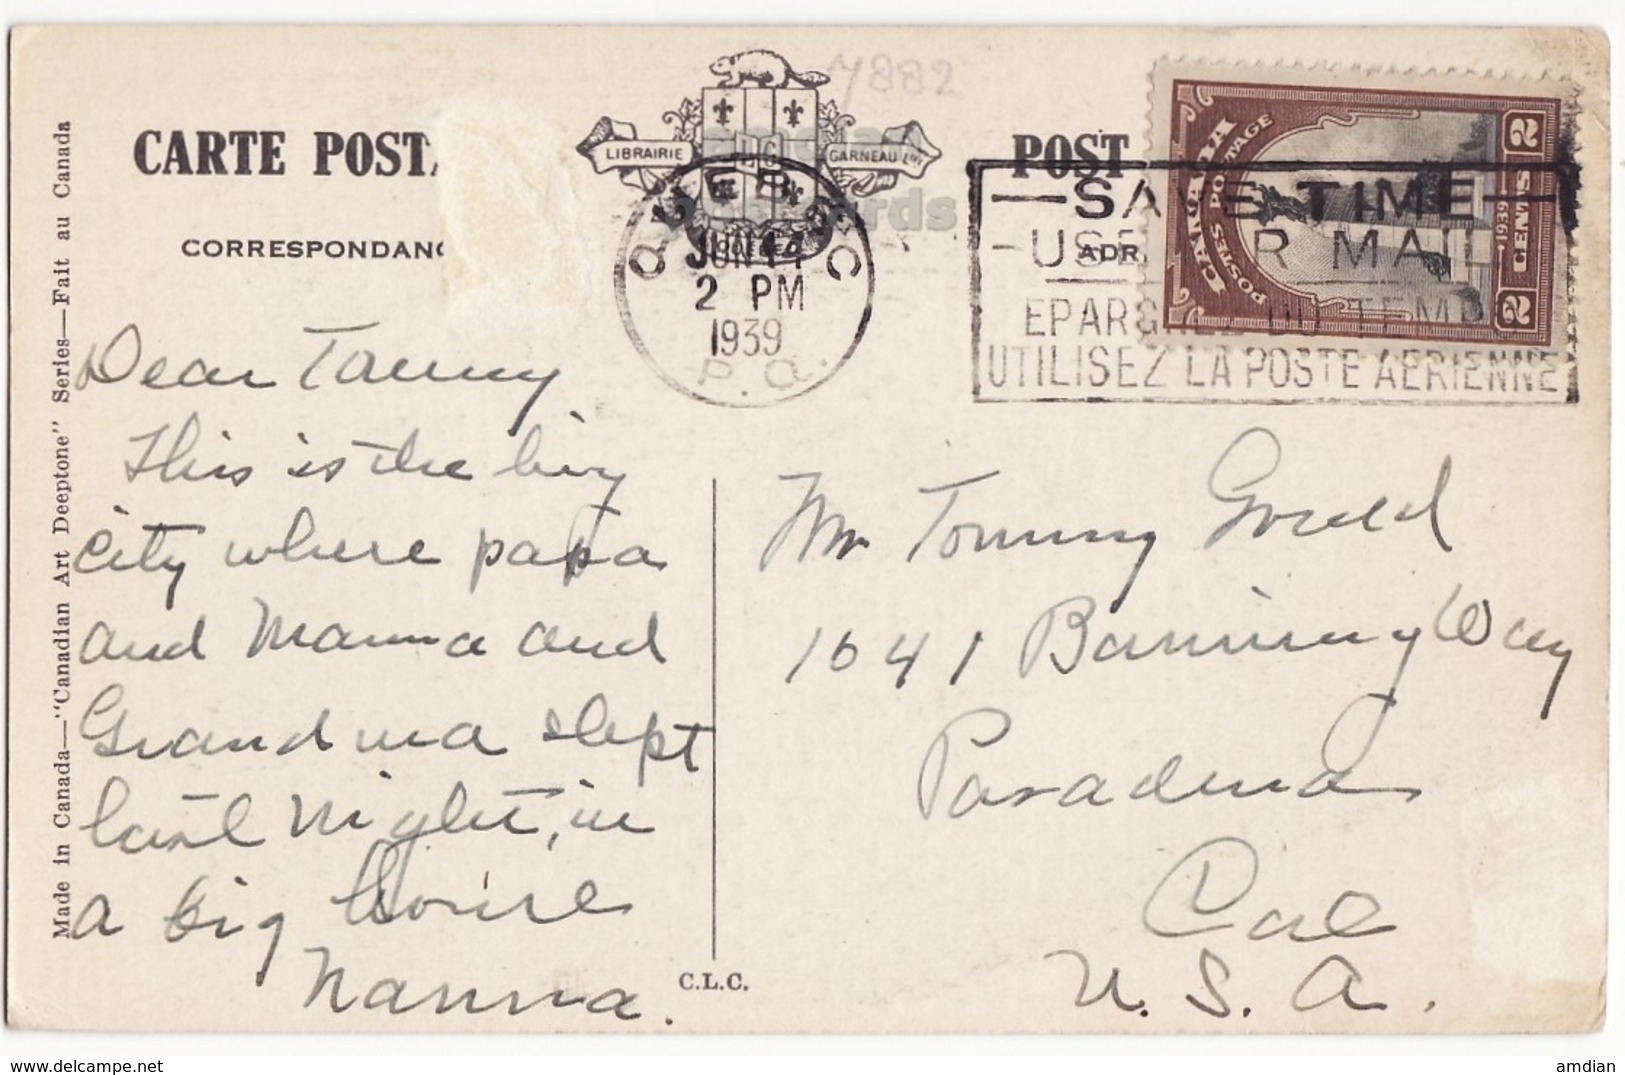 7882
CARTE POSTA
CORRESPONDANC
LIBRAIRIE
GARNEAU Ltée
POST
ADR
QUEBEC
JUN 14
2 PM
1939
P.Q.
SAVE TIME
USE AIR MAIL
EPARGNEZ DU TEMPS
UTILISEZ LA POSTE AERIENNE
CANADA
POSTES POSTAGE
1939
2 CENTS 2
Made in Canada—"Canadian Art Deeptone" Series—Fait au Canada
Dear Tommy
This is the big
city where papa
and Mamma and
Grandma slept
last night, in
a big house
Nanna.
C.L.C.
Mr Tommy Gould
1641 Banning Way
Pasadena
Cal
U.S.A.
amdian